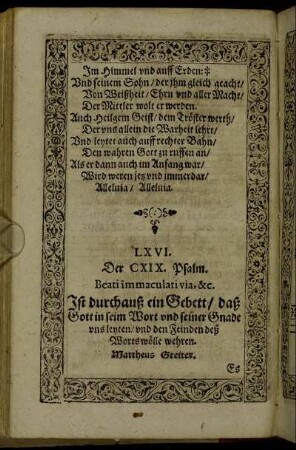 Im Himmel vnd auff Erden:‡
Vnd seinem Sohn / der jhm gleich geacht /
Von Weißheit / Ehrn vnd aller Macht /
Der Mittler wolt er werden.
Auch Heilgem Geist / dem Tröster werth /
Der vns allein die Warheit lehrt /
Vnd leytet auch auff rechter Bahn /
Den wahren Gott zu ruffen an /
Als er dann auch im Anfang war /
Wird weren jetz vnd immerdar /
Alleluia / Alleluia.
LXVI.
Der CXIX. Psalm.
Beati im̄maculati via. &c.
Ist durchauß ein Gebett / daß
Gott in seim Wort vnd seiner Gnade
vns leyten / vnd den Feinden deß
Worts wölle wehren.
Mattheus Greiter.
Es